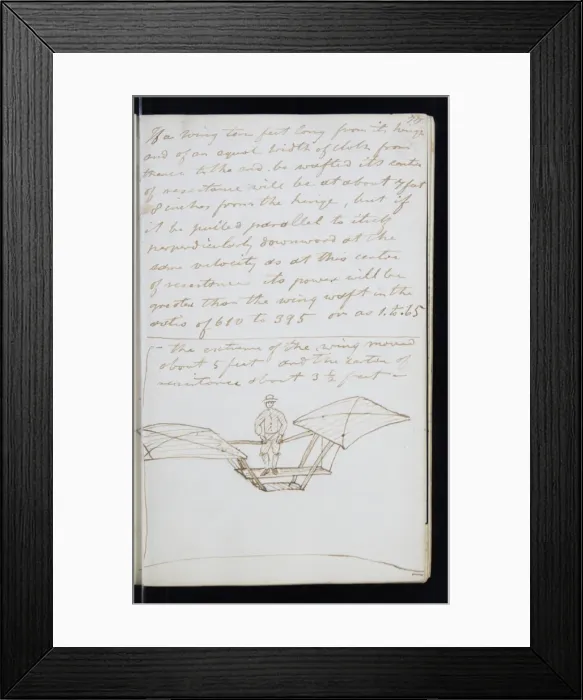 77
If a wing ten feet long from its hinge
and of an equal width of cloth from
thence to the end, be wafted its center
of resistance will be at about 7 feet
8 inches from the hinge, but if
it be pulled parallel to itself
perpendicularly downward at the
same velocity as at this center
of resistance its power will be
greater than the wing waft in the
ratio of 610 to 395 or as 1. to .65
the extreme of the wing moved
about 5 feet and the center of
resistance about 3 1/2 feet –